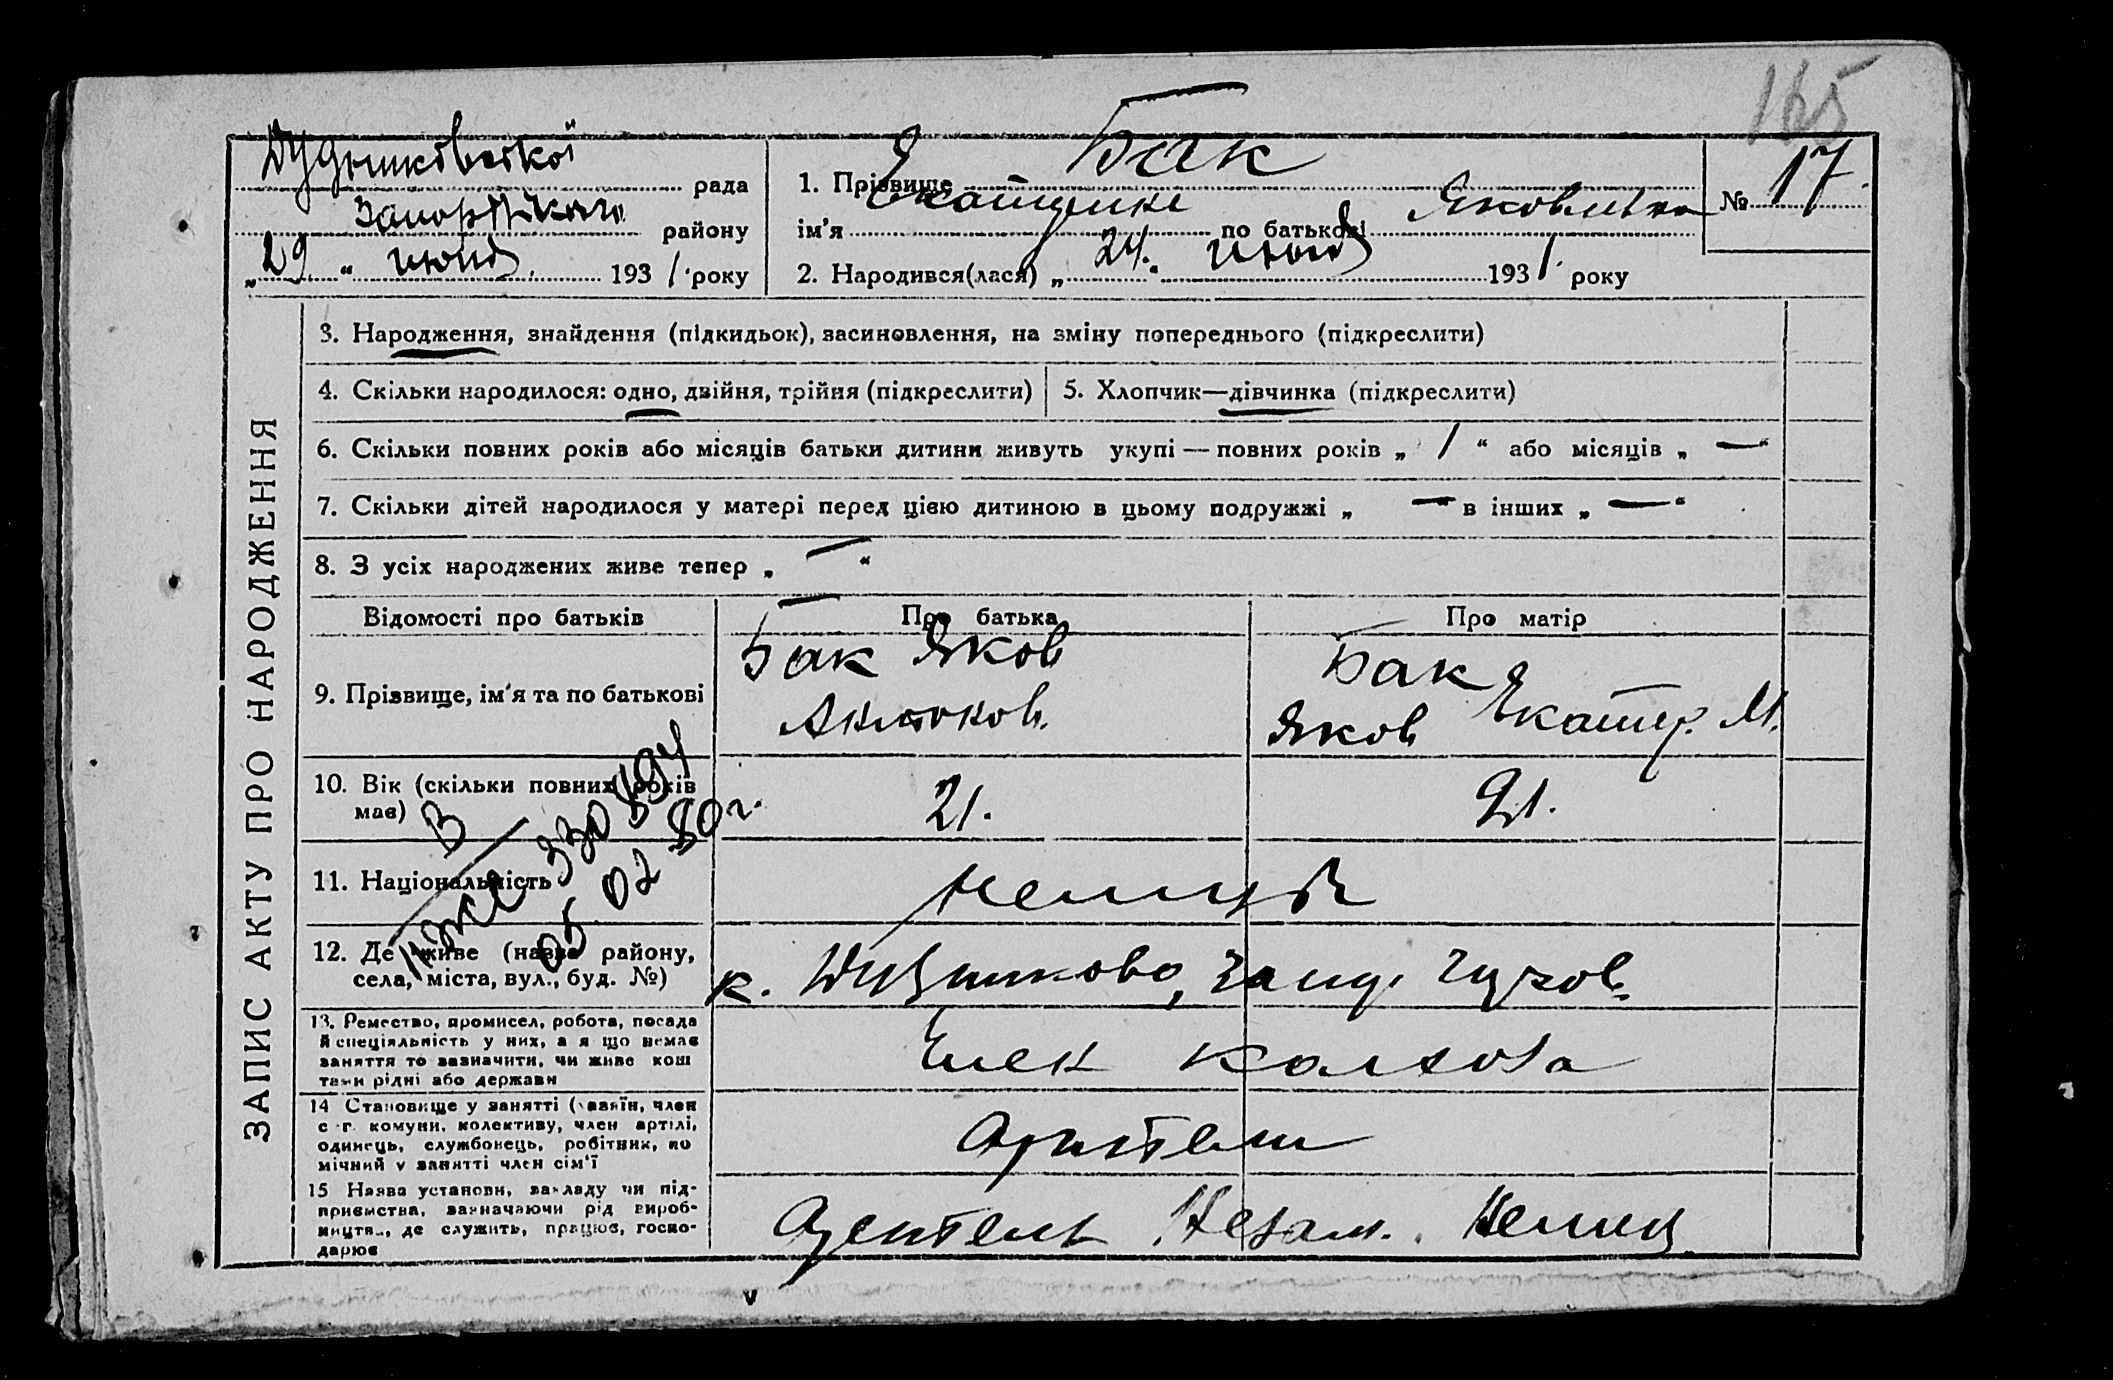 165
рада
Запорізького району
„29“ июня 1931 року
1. Прізвище Бак
ім'я по батькові Яковлевна
№ 17.
2. Народився(лася) „24“ июня 1931 року
ЗАПИС АКТУ ПРО НАРОДЖЕННЯ
3. Народження, знайдення (підкидьок), засиновлення, на зміну попереднього (підкреслити)
4. Скільки народилося: одно, двійня, трійня (підкреслити)
5. Хлопчик—дівчинка (підкреслити)
6. Скільки повних років або місяців батьки дитини живуть укупі — повних років „ 1 “ або місяців „ — “
7. Скільки дітей народилося у матері перед цією дитиною в цьому подружжі „ — “ в інших „ — “
8. З усіх народжених живе тепер „ — “
Відомості про батьків
Про батька
Про матір
9. Прізвище, ім'я та по батькові
Бак Яков
Бак
Яков Екатер. М.
10. Вік (скільки повних років має)
21.
21.
11. Національність
немцы
12. Де живе (назва району,
села, міста, вул., буд. №)
к.
13. Ремество, промисел, робота, посада
й спеціяльність у них, а я що немає
заняття то зазначити, чи живе кош
тами рідні або держави
Член колхоза
14 Становище у занятті (хазяїн, член
с.-г. комуни, колективу, член артілі,
одинець, службовець, робітник, по
мічний у занятті член сім'ї
15 Назва установи, закладу чи під-
приємства, зазначаючи рід вироб-
ництва, де служить, працює, госпо-
дарює
Незам.
В
05 02 80 г.